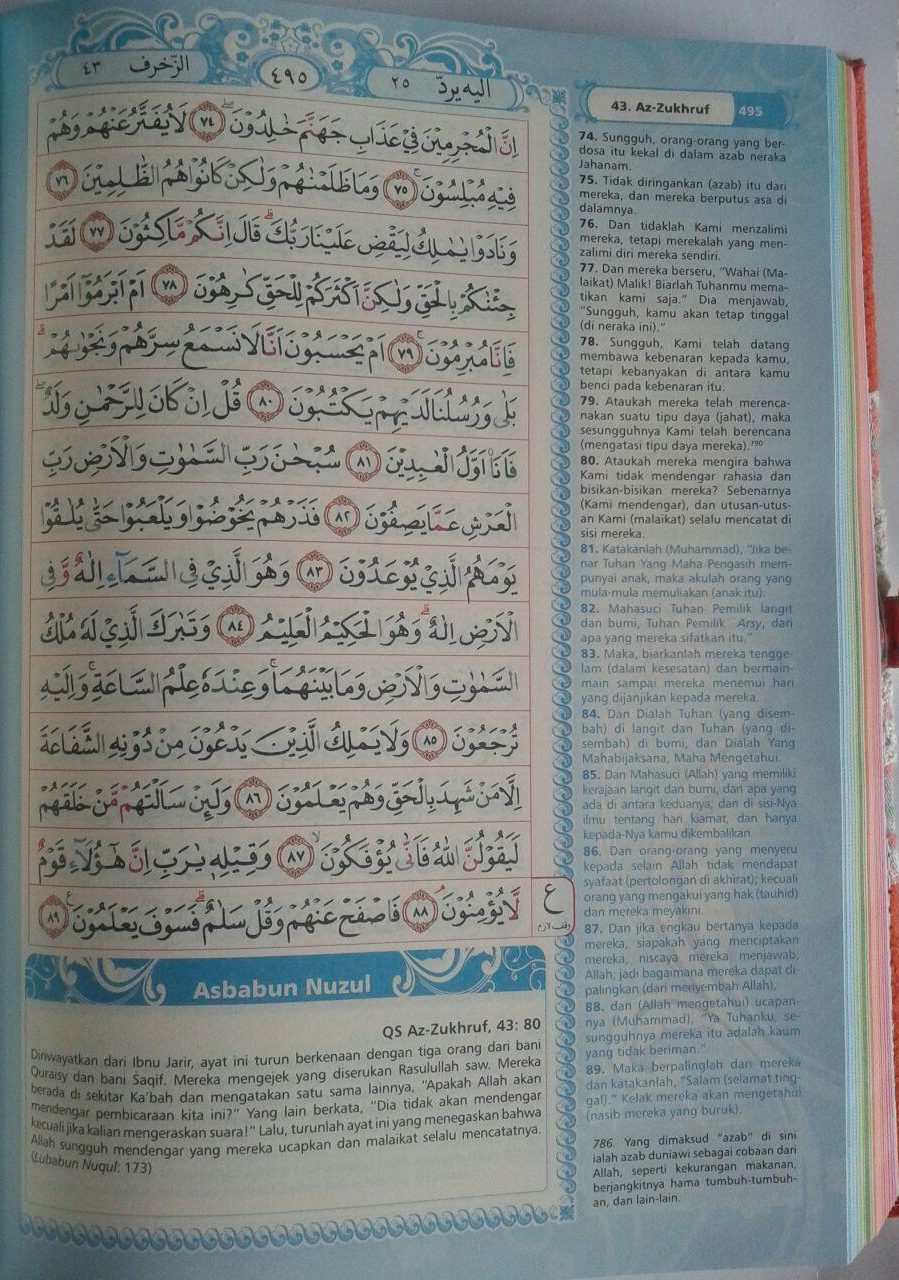 الزّخرف ٤٣
٤٩٥
اليه يردّ ٢٥
اِنَّ الْمُجْرِمِيْنَ فِيْ عَذَابِ جَهَنَّمَ خٰلِدُوْنَۖ ٧٤ لَا يُفَتَّرُ عَنْهُمْ وَهُمْ
فِيْهِ مُبْلِسُوْنَۚ ٧٥ وَمَا ظَلَمْنٰهُمْ وَلٰكِنْ كَانُوْا هُمُ الظّٰلِمِيْنَ ٧٦
وَنَادَوْا يٰمٰلِكُ لِيَقْضِ عَلَيْنَا رَبُّكَۗ قَالَ اِنَّكُمْ مّٰكِثُوْنَ ٧٧ لَقَدْ
جِئْنٰكُمْ بِالْحَقِّ وَلٰكِنَّ اَكْثَرَكُمْ لِلْحَقِّ كٰرِهُوْنَ ٧٨ اَمْ اَبْرَمُوْٓا اَمْرًا
فَاِنَّا مُبْرِمُوْنَۚ ٧٩ اَمْ يَحْسَبُوْنَ اَنَّا لَا نَسْمَعُ سِرَّهُمْ وَنَجْوٰىهُمْۗ
بَلٰى وَرُسُلُنَا لَدَيْهِمْ يَكْتُبُوْنَ ٨٠ قُلْ اِنْ كَانَ لِلرَّحْمٰنِ وَلَدٌۖ
فَاَنَا۠ اَوَّلُ الْعٰبِدِيْنَ ٨١ سُبْحٰنَ رَبِّ السَّمٰوٰتِ وَالْاَرْضِ رَبِّ
الْعَرْشِ عَمَّا يَصِفُوْنَ ٨٢ فَذَرْهُمْ يَخُوْضُوْا وَيَلْعَبُوْا حَتّٰى يُلٰقُوْا
يَوْمَهُمُ الَّذِيْ يُوْعَدُوْنَ ٨٣ وَهُوَ الَّذِيْ فِى السَّمَاۤءِ اِلٰهٌ وَّفِى
الْاَرْضِ اِلٰهٌۗ وَهُوَ الْحَكِيْمُ الْعَلِيْمُ ٨٤ وَتَبٰرَكَ الَّذِيْ لَهٗ مُلْكُ
السَّمٰوٰتِ وَالْاَرْضِ وَمَا بَيْنَهُمَاۚ وَعِنْدَهٗ عِلْمُ السَّاعَةِۚ وَاِلَيْهِ
تُرْجَعُوْنَ ٨٥ وَلَا يَمْلِكُ الَّذِيْنَ يَدْعُوْنَ مِنْ دُوْنِهِ الشَّفَاعَةَ
اِلَّا مَنْ شَهِدَ بِالْحَقِّ وَهُمْ يَعْلَمُوْنَ ٨٦ وَلَىِٕنْ سَاَلْتَهُمْ مَّنْ خَلَقَهُمْ
لَيَقُوْلُنَّ اللّٰهُ فَاَنّٰى يُؤْفَكُوْنَۙ ٨٧ وَقِيْلِهٖ يٰرَبِّ اِنَّ هٰٓؤُلَاۤءِ قَوْمٌ
لَّا يُؤْمِنُوْنَۘ ٨٨ فَاصْفَحْ عَنْهُمْ وَقُلْ سَلٰمٌۗ فَسَوْفَ يَعْلَمُوْنَࣖ ٨٩
ع
وقف لازم
Asbabun Nuzul
QS Az-Zukhruf, 43: 80
Diriwayatkan dari Ibnu Jarir, ayat ini turun berkenaan dengan tiga orang dari bani
Quraisy dan bani Saqif. Mereka mengejek yang diserukan Rasulullah saw. Mereka
berada di sekitar Ka'bah dan mengatakan satu sama lainnya, "Apakah Allah akan
mendengar pembicaraan kita ini?" Yang lain berkata, "Dia tidak akan mendengar
kecuali jika kalian mengeraskan suara!" Lalu, turunlah ayat ini yang menegaskan bahwa
Allah sungguh mendengar yang mereka ucapkan dan malaikat selalu mencatatnya.
(Lubabun Nuqul: 173)
43. Az-Zukhruf 495
74. Sungguh, orang-orang yang ber-
dosa itu kekal di dalam azab neraka
Jahanam.
75. Tidak diringankan (azab) itu dari
mereka, dan mereka berputus asa di
dalamnya.
76. Dan tidaklah Kami menzalimi
mereka, tetapi merekalah yang men-
zalimi diri mereka sendiri.
77. Dan mereka berseru, "Wahai (Ma-
laikat) Malik! Biarlah Tuhanmu mema-
tikan kami saja." Dia menjawab,
"Sungguh, kamu akan tetap tinggal
(di neraka ini)."
78. Sungguh, Kami telah datang
membawa kebenaran kepada kamu,
tetapi kebanyakan di antara kamu
benci pada kebenaran itu.
79. Ataukah mereka telah merenca-
nakan suatu tipu daya (jahat), maka
sesungguhnya Kami telah berencana
(mengatasi tipu daya mereka).⁷⁹⁰
80. Ataukah mereka mengira bahwa
Kami tidak mendengar rahasia dan
bisikan-bisikan mereka? Sebenarnya
(Kami mendengar), dan utusan-utus-
an Kami (malaikat) selalu mencatat di
sisi mereka.
81. Katakanlah (Muhammad), "Jika be-
nar Tuhan Yang Maha Pengasih mem-
punyai anak, maka akulah orang yang
mula-mula memuliakan (anak itu).
82. Mahasuci Tuhan Pemilik langit
dan bumi, Tuhan Pemilik 'Arsy, dari
apa yang mereka sifatkan itu."
83. Maka, biarkanlah mereka tengge-
lam (dalam kesesatan) dan bermain-
main sampai mereka menemui hari
yang dijanjikan kepada mereka.
84. Dan Dialah Tuhan (yang disem-
bah) di langit dan Tuhan (yang di-
sembah) di bumi, dan Dialah Yang
Mahabijaksana, Maha Mengetahui.
85. Dan Mahasuci (Allah) yang memiliki
kerajaan langit dan bumi, dan apa yang
ada di antara keduanya; dan di sisi-Nya
ilmu tentang hari kiamat, dan hanya
kepada-Nya kamu dikembalikan.
86. Dan orang-orang yang menyeru
kepada selain Allah tidak mendapat
syafaat (pertolongan di akhirat); kecuali
orang yang mengakui yang hak (tauhid)
dan mereka meyakini.
87. Dan jika engkau bertanya kepada
mereka, siapakah yang menciptakan
mereka, niscaya mereka menjawab,
Allah; jadi bagaimana mereka dapat di-
palingkan (dari menyembah Allah),
88. dan (Allah mengetahui) ucapan-
nya (Muhammad), "Ya Tuhanku, se-
sungguhnya mereka itu adalah kaum
yang tidak beriman."
89. Maka berpalinglah dari mereka
dan katakanlah, "Salam (selamat ting-
gal)." Kelak mereka akan mengetahui
(nasib mereka yang buruk).
786. Yang dimaksud "azab" di sini
ialah azab duniawi sebagai cobaan dari
Allah, seperti kekurangan makanan,
berjangkitnya hama tumbuh-tumbuh-
an, dan lain-lain.